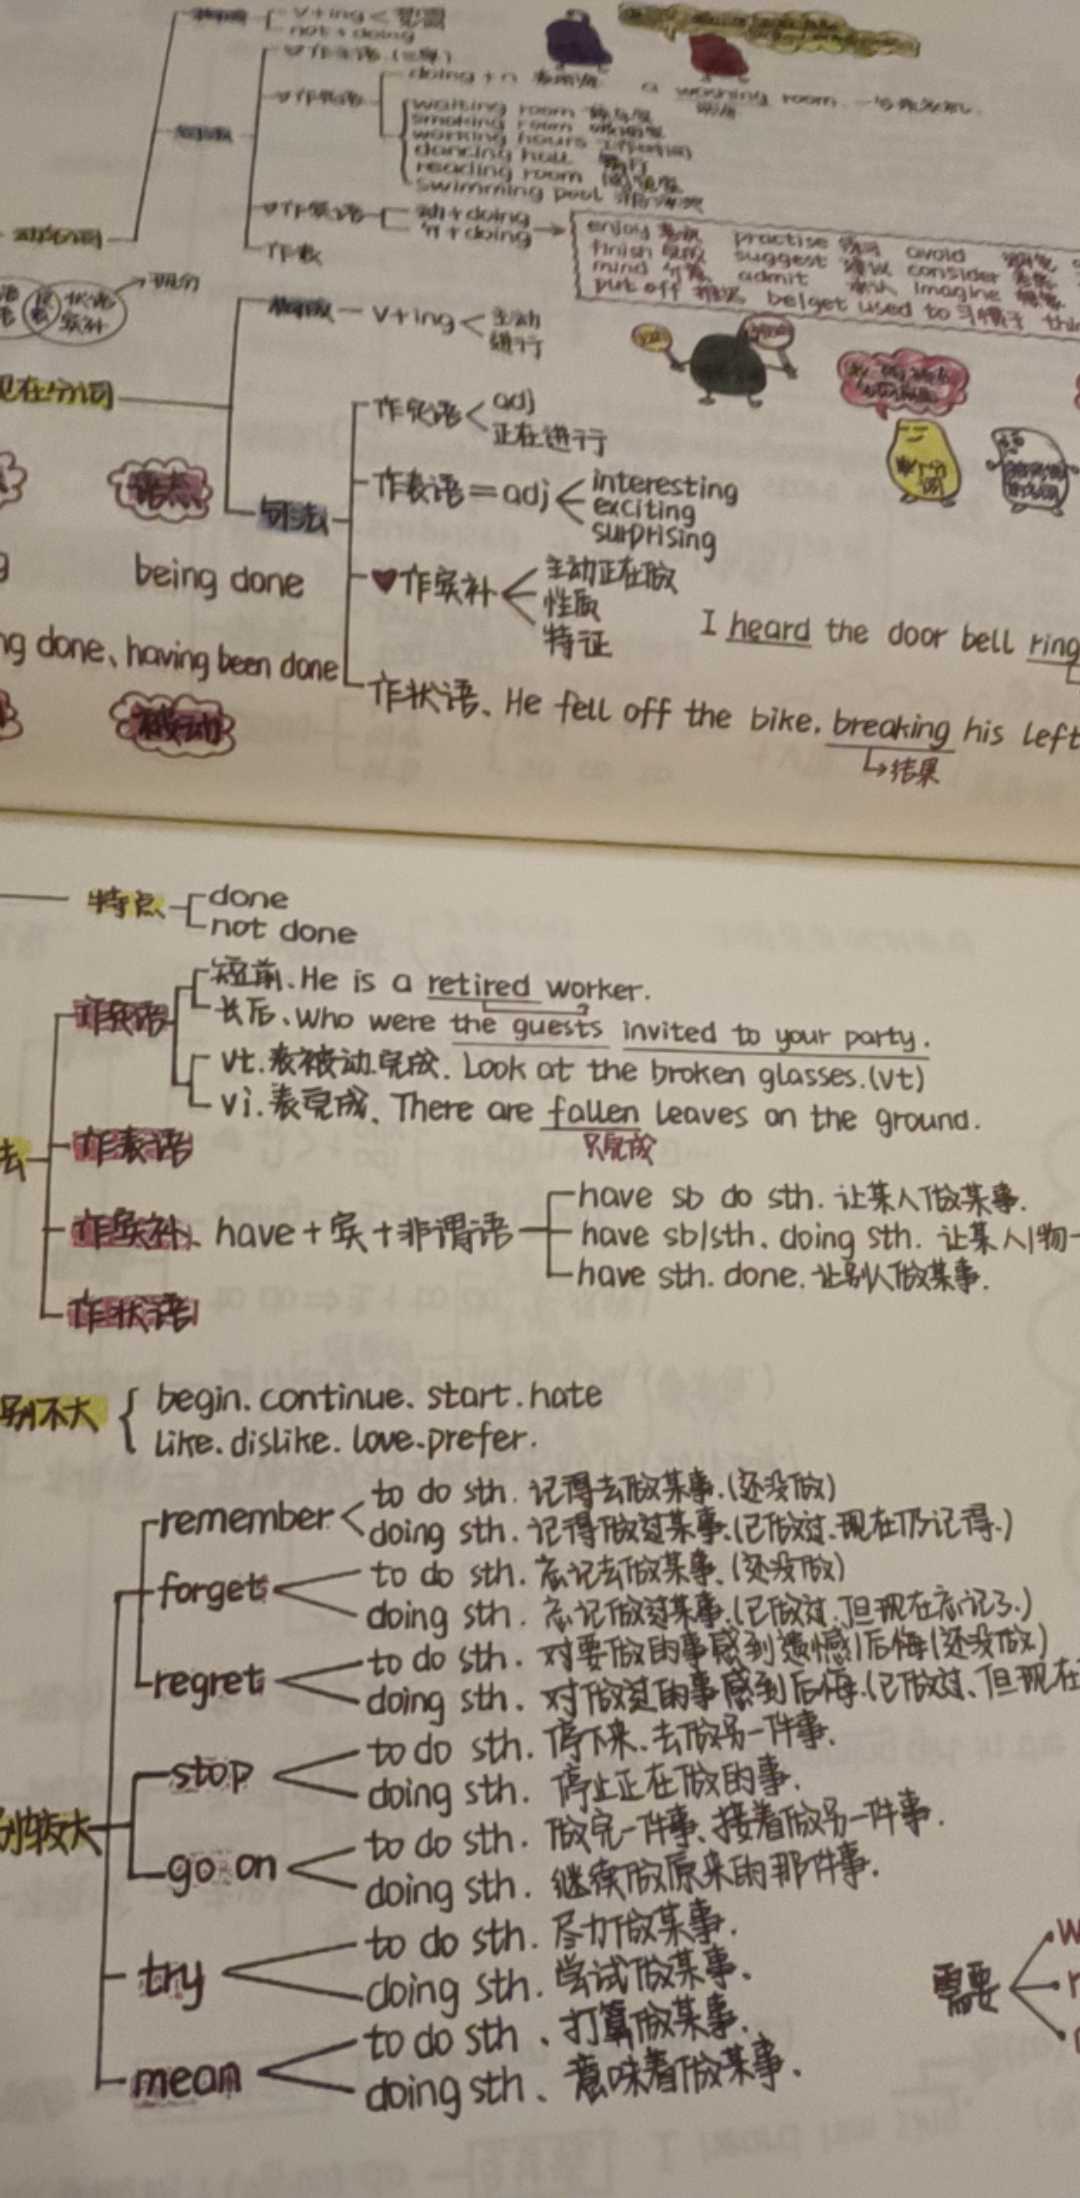 V+ing
not+doing
doing + n a washing room.
waiting room
smoking room
working hours 工作时间
dancing hall
reading room 阅览室
swimming pool 游泳池
动名词
作宾语 动+doing
介+doing
enjoy practise avoid
finish suggest 建议 consider
mind 介意 admit 承认 imagine
put off 推迟 be/get used to 习惯于
作表
状语
宾补
V+ing 主动
进行
现在分词
作定语 adj
正在进行
作表语=adj interesting
exciting
surprising
句法
being done
作宾补 主动正在做
性质
特征
I heard the door bell ring
ng done、having been done
作状语、He fell off the bike, breaking his left
结果
被动
特点 done
not done
作定语 短前、He is a retired worker.
长后、Who were the guests invited to your party.
vt.表被动.完成. Look at the broken glasses.(vt)
vi.表完成、There are fallen leaves on the ground.
只完成
作表语
作宾补、have+宾+非谓语
have sb do sth. 让某人做某事.
have sb/sth. doing sth. 让某人/物一
have sth. done. 让别人做某事.
作状语
别不大 begin.continue.start.hate
like.dislike.love.prefer.
remember to do sth. 记得去做某事.(还没做)
doing sth. 记得做过某事.(已做过、现在仍记得.)
forget to do sth. 忘记去做某事、(还没做)
doing sth. 忘记做过某事.(已做过、但现在忘记了.)
regret to do sth. 对要做的事感到遗憾/后悔(还没做)
doing sth. 对做过的事感到后悔.(已做过、但现在
stop to do sth. 停下来、去做另一件事.
doing sth. 停止正在做的事.
别较大
go on to do sth. 做完一件事、接着做另一件事.
doing sth. 继续做原来的那件事.
try to do sth. 尽力做某事.
doing sth. 尝试做某事、
需要
mean to do sth、打算做某事.
doing sth、意味着做某事.